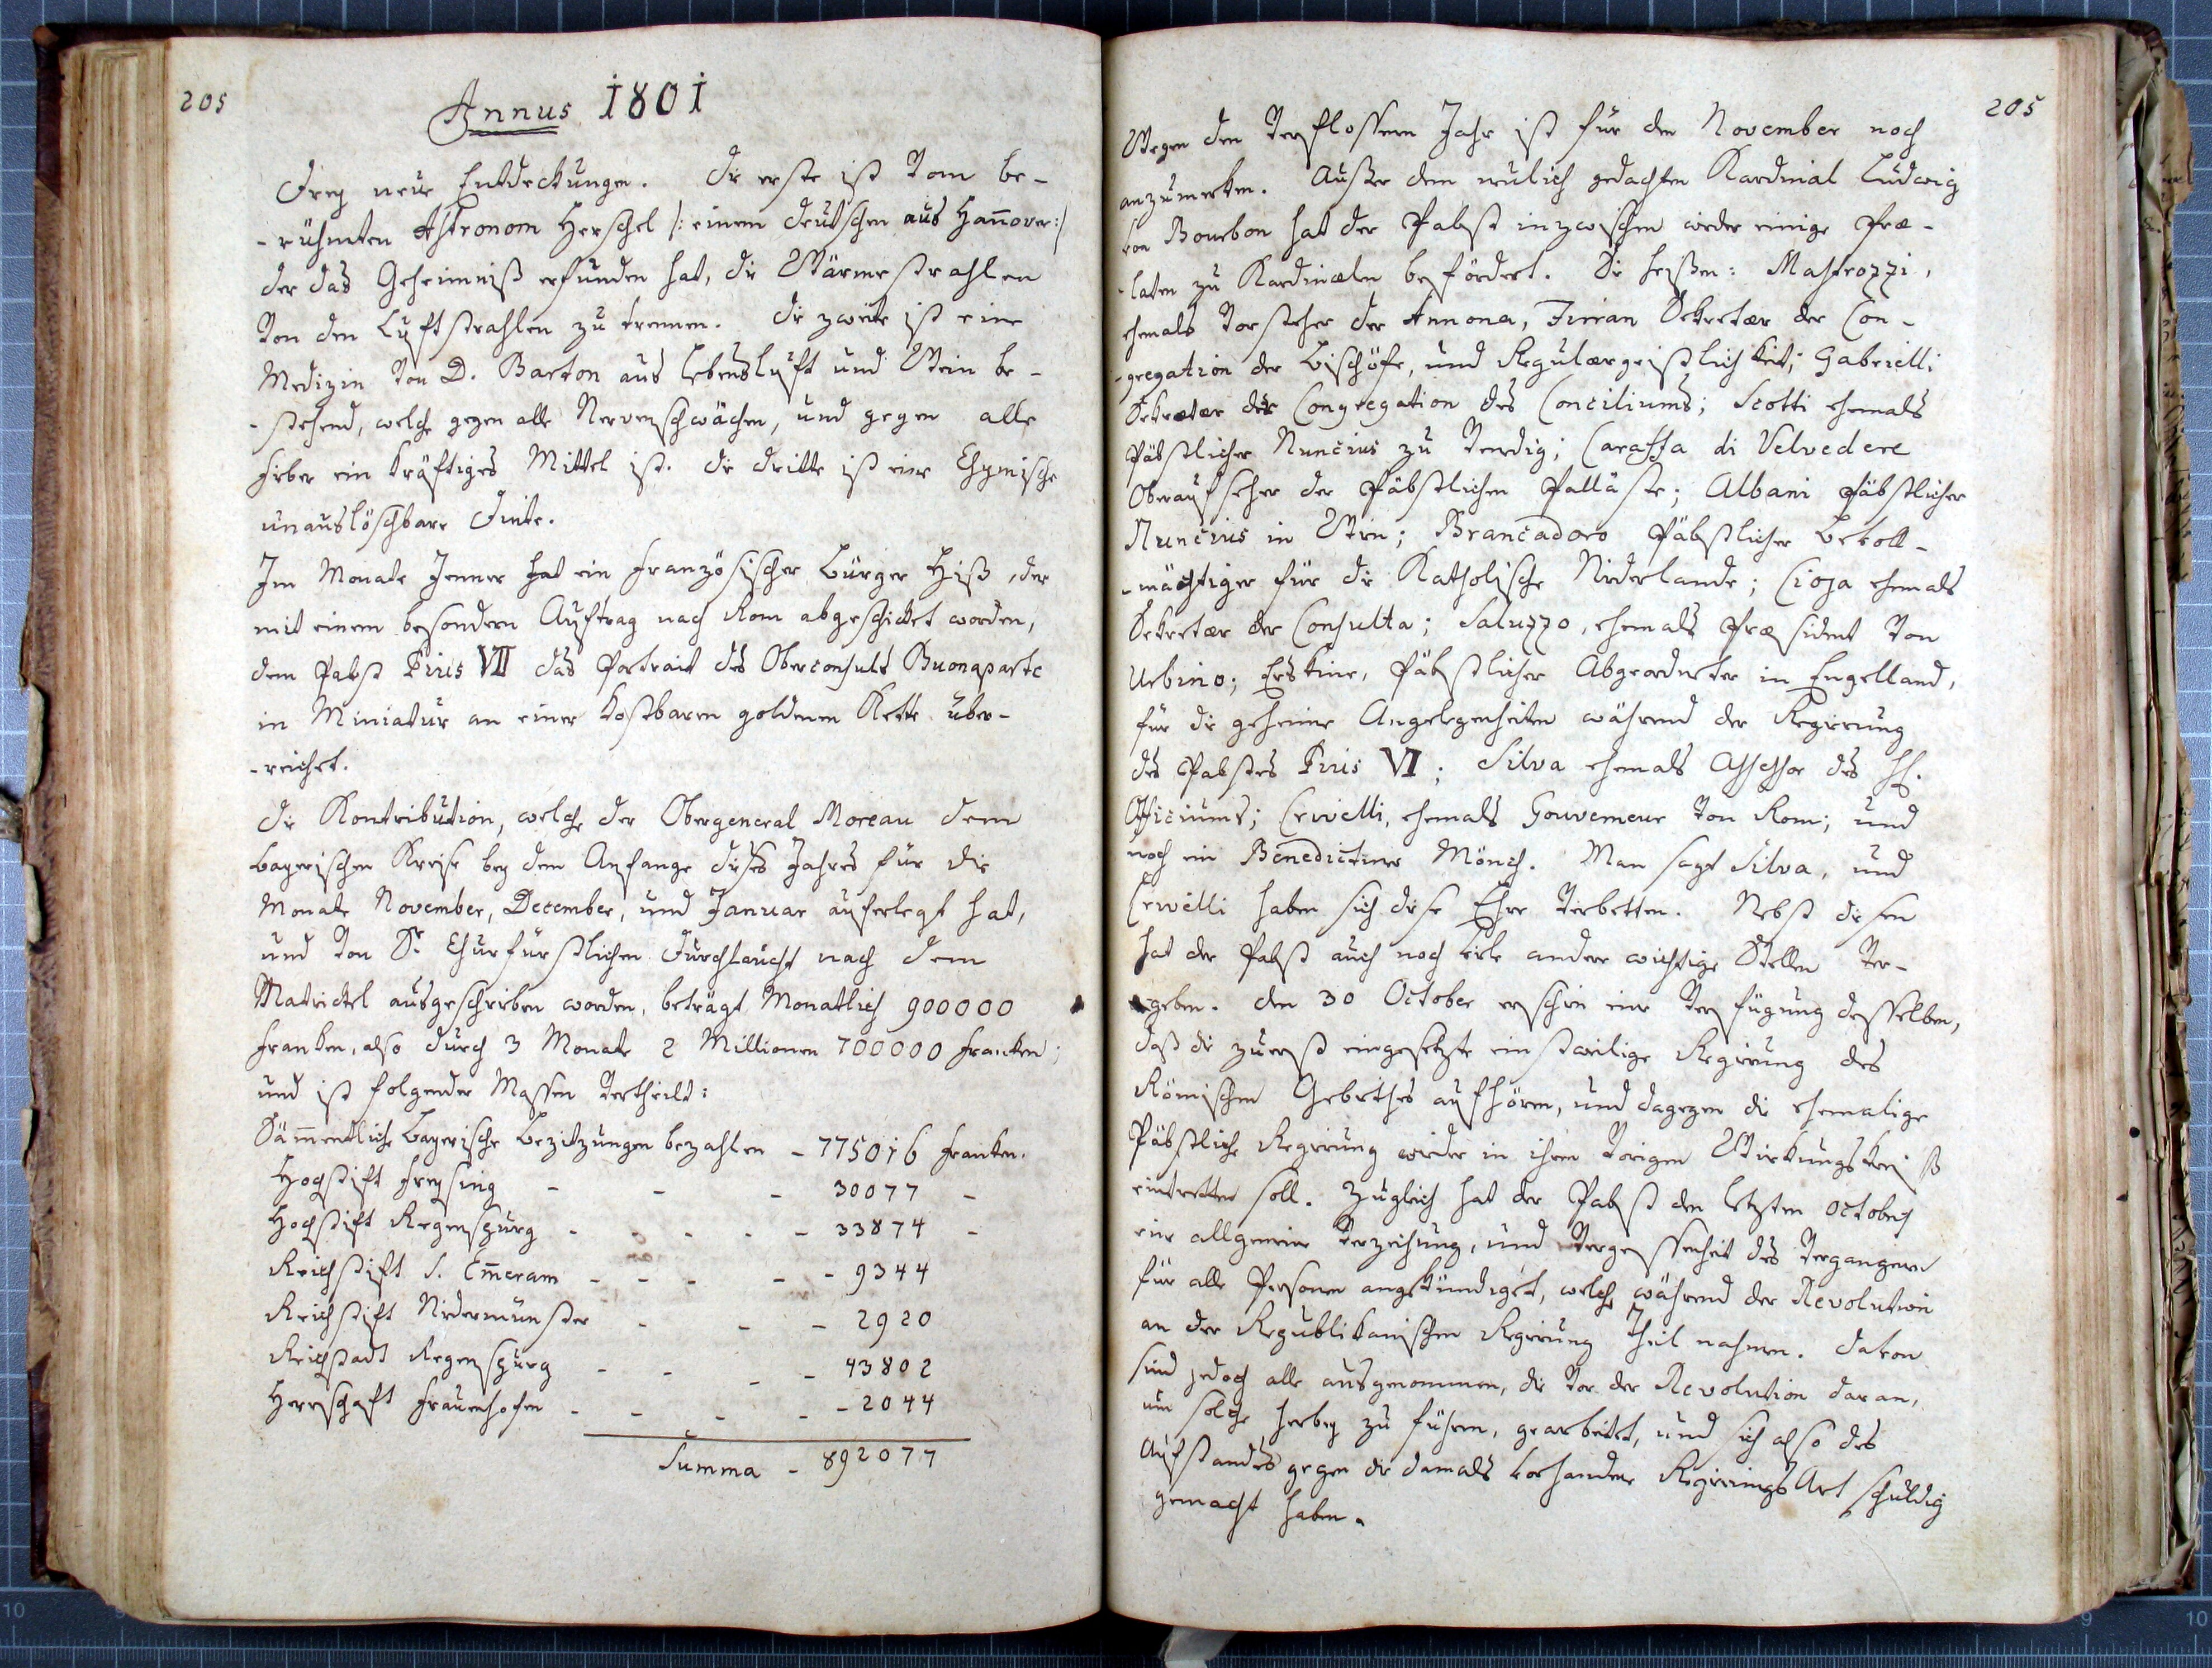 205
Annus 1801
Drey neue Entdeckungen. Die erste ist vom be-
-rühmten Astronom Herschel /: einem deutschen aus Hañover :/
der das Geheimniß erfunden hat, die Wärmestrahlen
von den Luftstrahlen zu trennen. Die zweite ist eine
Medizin von D. Barton aus Lebensluft und Wein be-
-stehend, welche gegen alle Nervenschwächen, und gegen alle
Fieber ein kräftiges Mittel ist. Die dritte ist eine Chymische
unauslöschbare Dinte.
Im Monate Jenner hat ein französischer Bürger Hiß, der
mit einem besondern Auftrag nach Rom abgeschickt worden,
dem Pabst Pius VII das Portrait des Oberconsuls Buonaparte
in Miniatur an einer kostbaren goldenen Kette über-
-reichet.
Die Kontribution, welche der Obergeneral Moreau dem
bayerischen Kreise bey dem Anfange dieses Jahres für die
Monate November, December, und Januar auferlegt hat,
und von Sr Churfürstlichen Durchlaucht nach dem
Matrickel ausgeschrieben worden, beträgt Monatlich 900000
Franken, also durch 3 Monate 2 Millionen 700000 Franken;
und ist folgender Massen vertheilt:
Sam̄entliche bayerische Besitzungen bezahlen - 775016 Franken.
Hochstift Freysing - - - 30077 -
Hochstift Regenspurg - - - - 33874 -
Reichstift S. Em̄eram - - - - - 9344
Reichstift Niedermünster - - - 2920
Reichstadt Regenspurg - - - - 43802
Herrschaft Frauenhofen - - - - - 2044
Summa - 892077
205
Wegen dem verflossenen Jahr ist für den November noch
anzumerken. Ausser dem neulich gedachten Kardinal Ludwig
von Bourbon hat der Pabst inzwischen wieder einige Præ-
-laten zu Kardinælen befördert. Sie heißen: Mastrozzi,
ehemals Vorsteher der Annona, Firrian Sekretær der Con-
-gregation der Bischöfe, und Regulærgeistlichkeit; Gabrielli
Sekretær der Congregation des Conciliums; Scotti ehemals
Päbstlicher Nuncius zu Venedig; Caraffa di Velvedere
Oberaufseher der Päbstlichen Palläste; Albani Päbstlicher
Nuncius in Wien; Brancadoro Päbstlicher Bevoll-
-mächtiger für die Katholische Niederlande; Cioja ehemals
Sekretær der Consulta; Saluzzo, ehemals Præsident von
Urbino; Erskine, Päbstlicher Abgeordneter in Engelland,
für die geheime Angelegenheiten während der Regierung
des Pabstes Pius VI; Silva ehemals Assessor des hl.
Officiums; Crivelli, ehemals Gouverneur von Rom; und
noch ein Benedictiner Mönch. Man sagt Silva, und
Crivelli haben sich diese Ehre verbetten. Nebst diesen
hat der Pabst auch noch viele andere wichtige Stellen ver-
-geben. Den 30 October erschien eine Verfügung desselben,
daß die zuerst eingesetzte einstweilige Regierung des
Römischen Gebiethes aufhören, und dagegen die ehemalige
Päbstliche Regierung wieder in ihren vorigen Wirkungskreiß
eintretten soll. Zugleich hat der Pabst den letzten October
eine allgemeine Verzeihung, und Vergessenheit des Vergangenen
für alle Personen angekündiget, welche während der Revolution
an der Republikanischen Regierung Theil nahmen. Davon
sind jedoch alle ausgenommen, die vor der Revolution daran,
um solche herbey zu führen, gearbeitet, und sich also des
Aufstandes gegen die damals vorhandene Regierungs Art schuldig
gemacht haben.